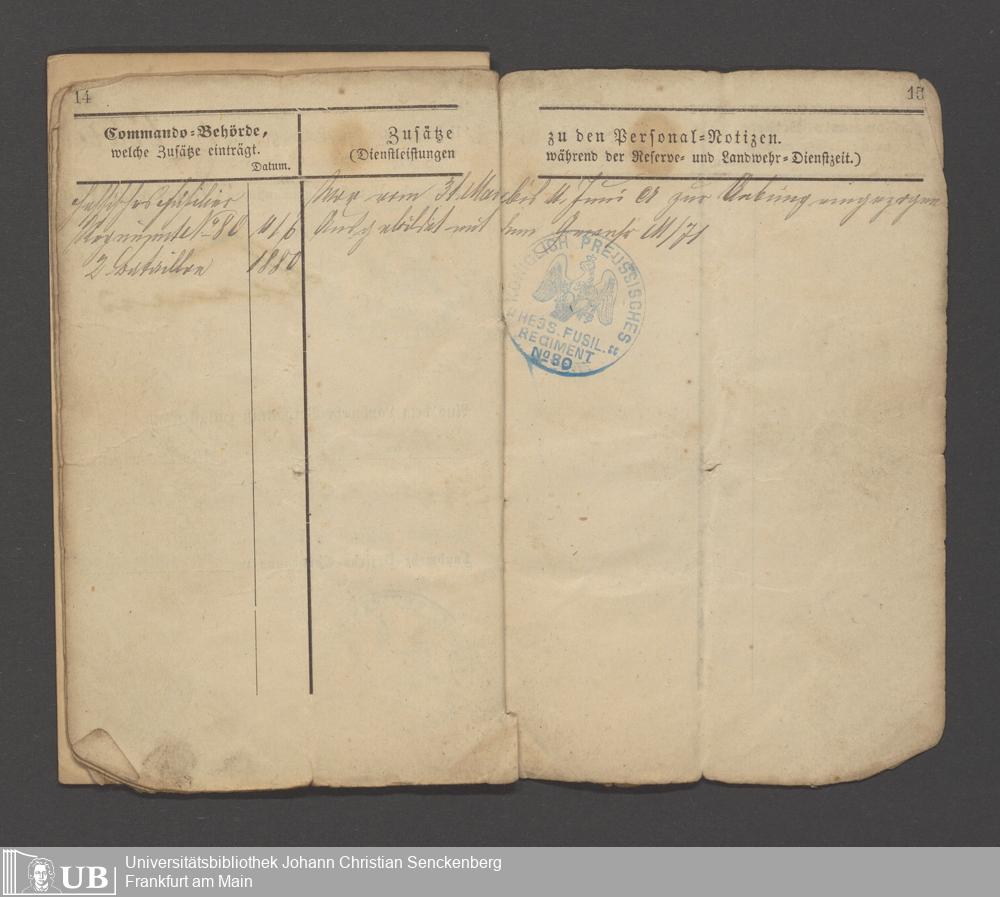 14
15
Commando-Behörde,
welche Zusätze einträgt.
Datum.
Zusätze
(Dienstleistungen
zu den Personal-Notizen.
während der Reserve- und Landwehr-Dienstzeit.)
Hessisches Füsilier
Regiments No 80
11/6
2 Bataillon
1880
War vom 31. Mai bis 11. Juni cr zur Uebung eingezogen
Ausgebildet mit dem Gewehr M/71
KÖNIGLICH PREUSSISCHES
HESS. FUSIL.
REGIMENT
No 80
UB
Universitätsbibliothek Johann Christian Senckenberg
Frankfurt am Main